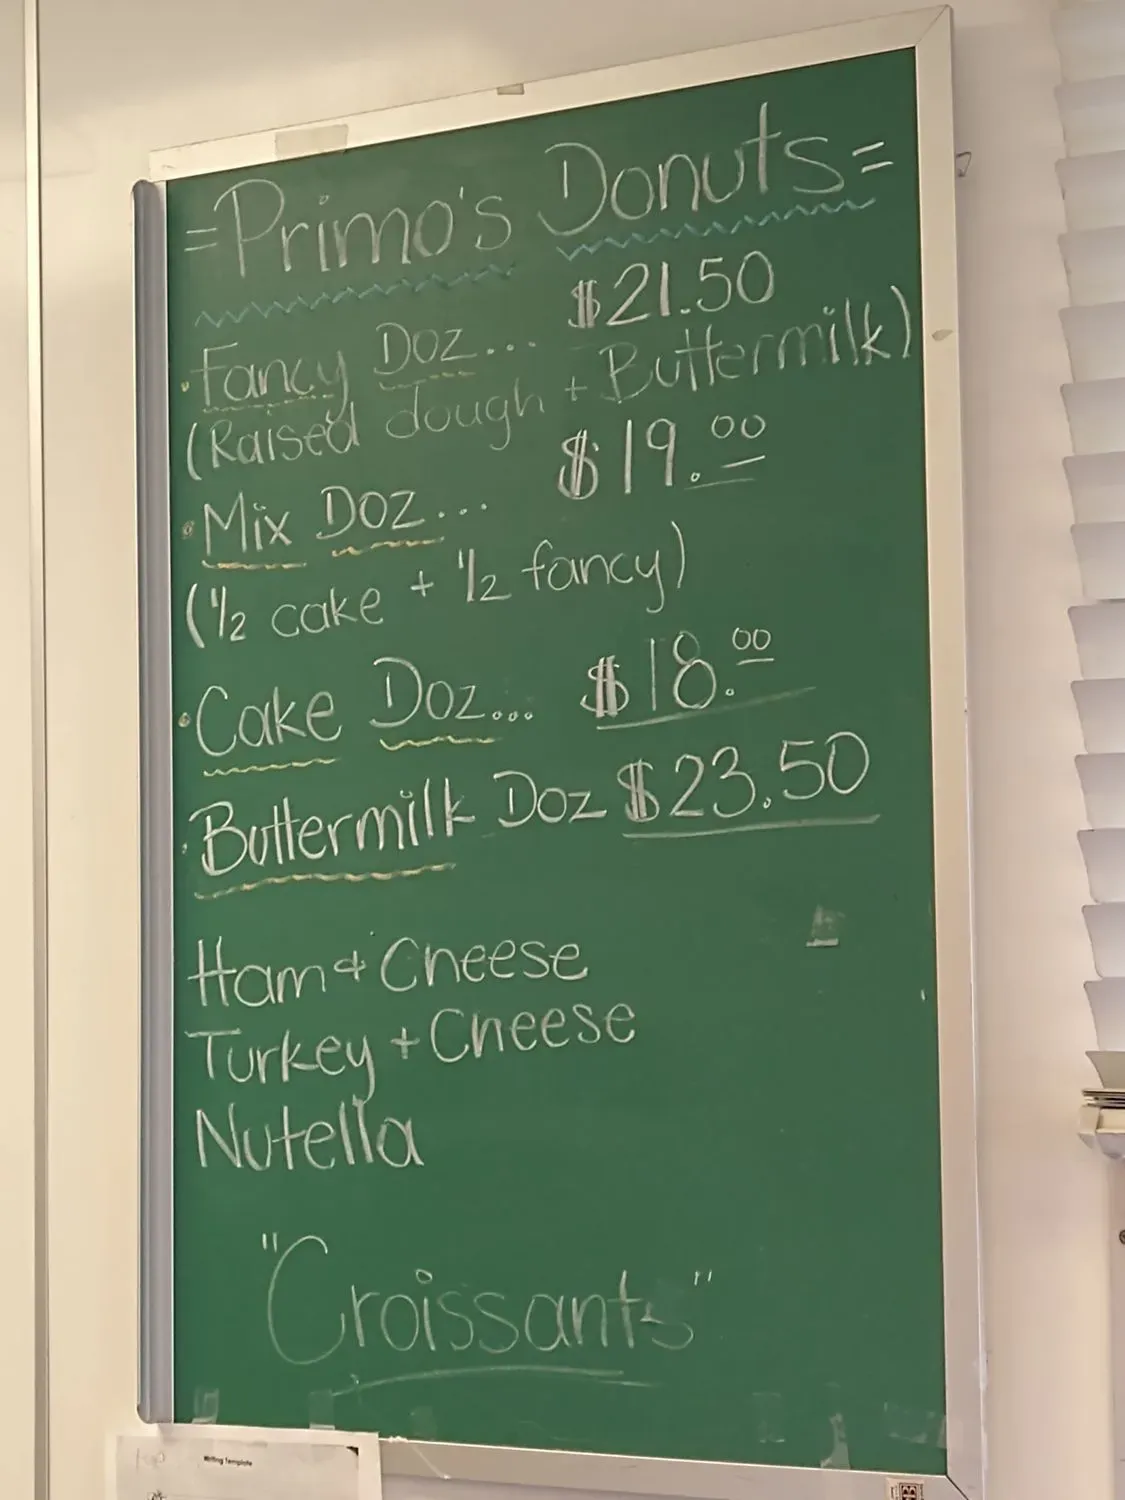 =Primo's Donuts=
·Fancy Doz... $21.50
(Raised dough + Buttermilk)
·Mix Doz... $19.00
(1/2 cake + 1/2 fancy)
·Cake Doz... $18.00
·Buttermilk Doz $23.50
Ham & Cheese
Turkey + Cheese
Nutella
"Croissants"
Writing Template